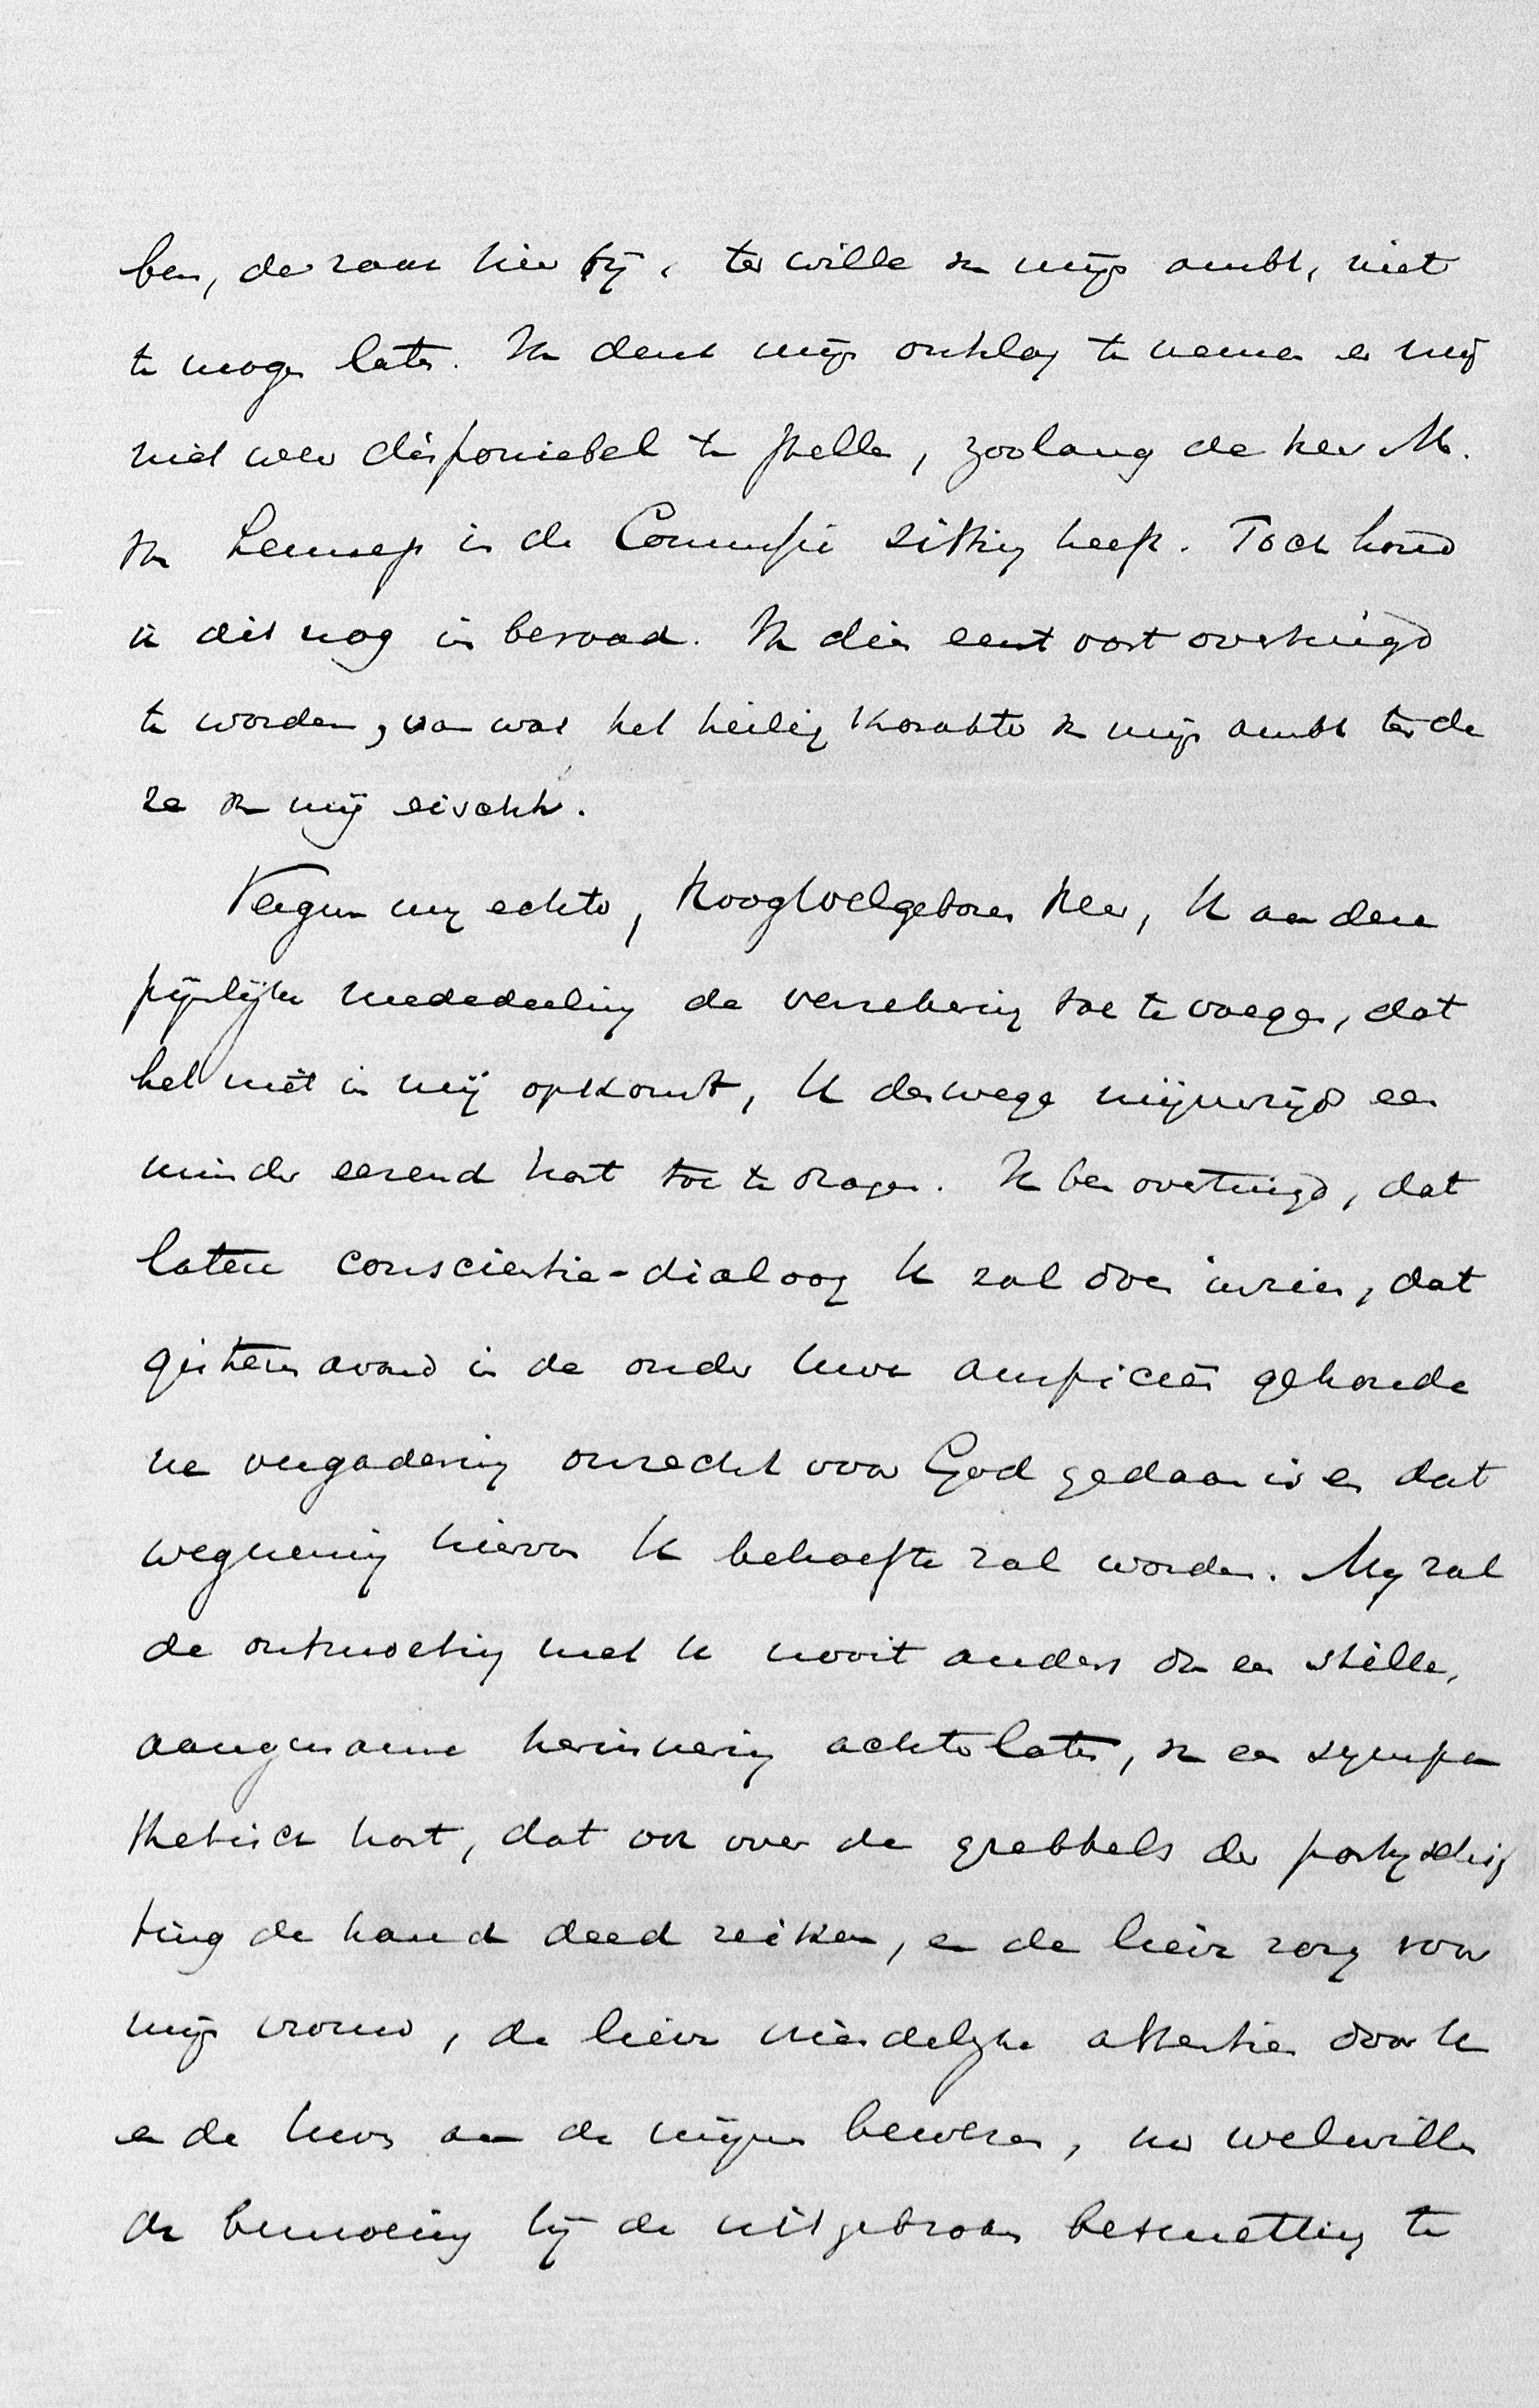 ben, de zaak hier bij, ter wille van mijn ambt, niet
te mogen laten. Ik denk mijn ontslag te nemen en mij
niet weer disponiebel te stellen, zoolang de heer M.
van Lennep in de Commissie zitting heeft. Toch houd
ik dit nog in beraad. Ik dien eerst vast overtuigd
te worden, van wat het heilig karakter van mijn ambt ten de
ze van mij eischt.
Vergun mij echter, Hoogwelgeboren Heer, U aan deze
pijnlijke mededeeling de verzekering toe te voegen, dat
het niet in mij opkomt, U deswege mijnerzijds een
minder eerend hart toe te dragen. Ik ben overtuigd, dat
latere conscientie-dialoog U zal doen inzien, dat
gisteren avond in de onder Uwe auspiciën gehoude
ne vergadering onrecht voor God gedaan is en dat
wegneming hiervan U behoefte zal worden. Mij zal
de ontmoeting met U nooit anders dan een stille,
aangename herinnering achterlaten, van een sympa
thetisch hart, dat ook over de greppels der partijschif
ting de hand deed reiken, en de lieve zorg voor
mijn vrouw, de lieve vriendelijke attentien door U
en de Uwen aan de mijnen bewezen, uw welwillen
de bemoeiing bij de uitgebroken besmetting te